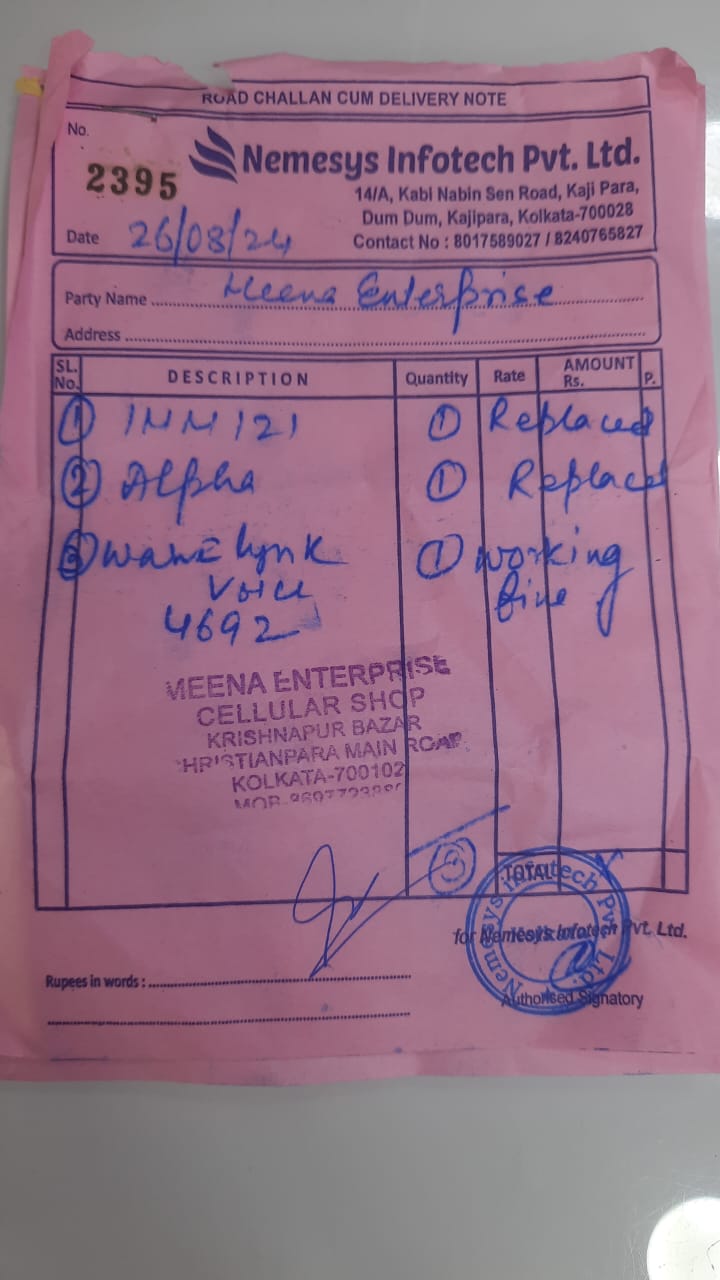 ROAD CHALLAN CUM DELIVERY NOTE
No.
2395
Nemesys Infotech Pvt. Ltd.
14/A, Kabi Nabin Sen Road, Kaji Para,
Dum Dum, Kajipara, Kolkata-700028
Contact No : 8017589027 / 8240765827
Date 26/08/24
Party Name Meena Enterprise
Address
SL. No. DESCRIPTION Quantity Rate AMOUNT Rs. P.
1 1 Replaced
2 Alpha 1 Replaced
3 1 Working
Voice fine
4692
MEENA ENTERPRISE
CELLULAR SHOP
KRISHNAPUR BAZAR
CHRISTIANPARA MAIN ROAD
KOLKATA-700102
3 TOTAL
for Nemesys Infotech Pvt. Ltd.
Nemesys Infotech Pvt. Ltd.
Rupees in words :
Authorised Signatory